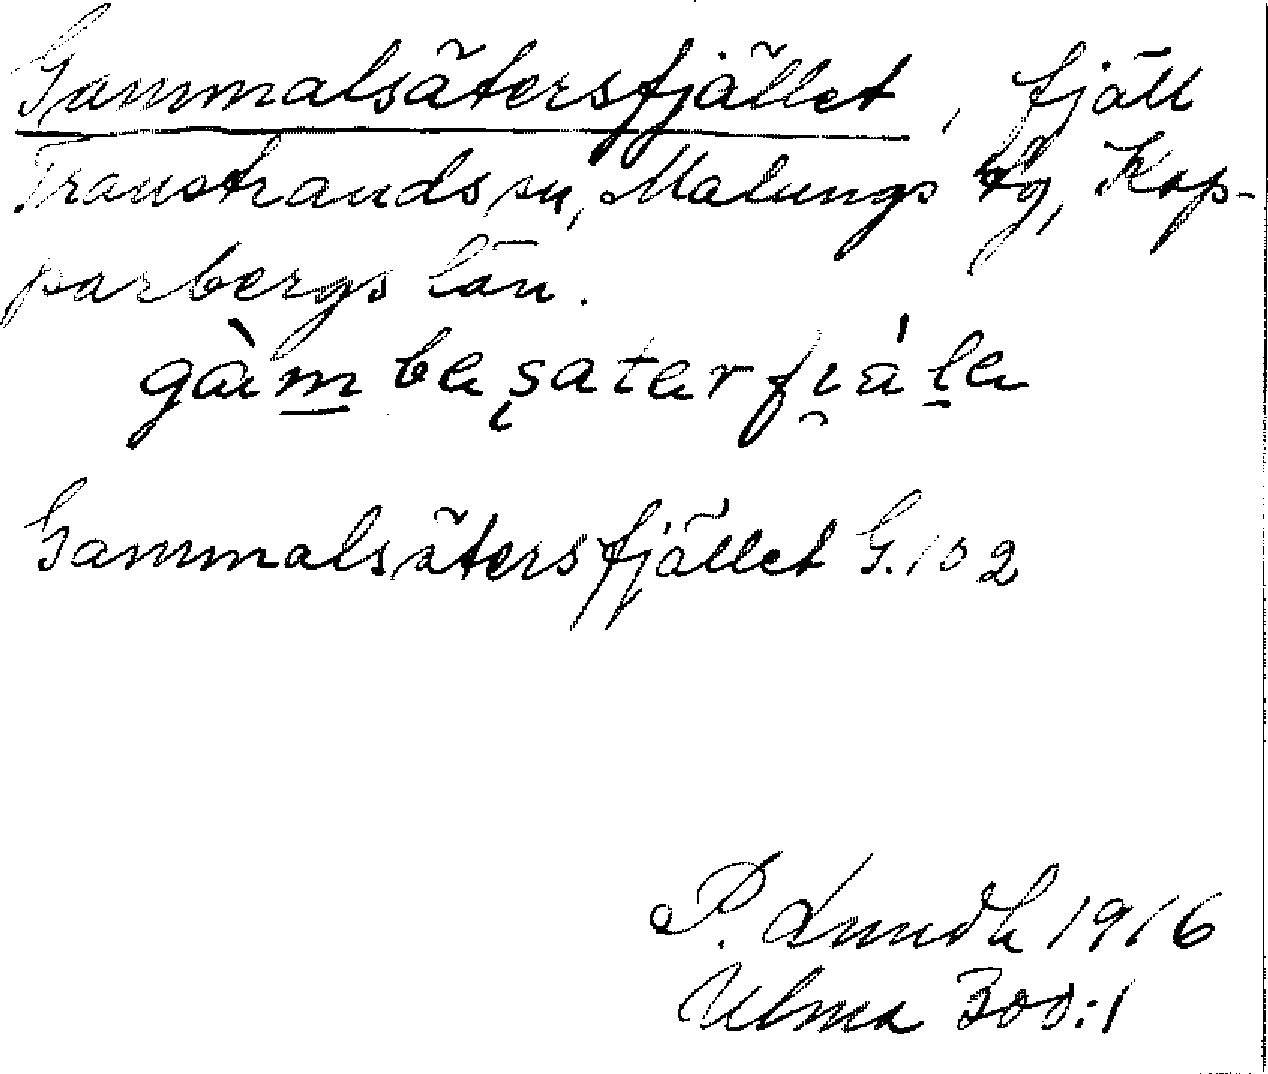 Gammalsätersfjället, fjäll
Transtrands sn, Malungs tg, Kop-
parbergs län.
Gammalsätersfjället G. 102
P. Lundh 1916
Ulma 300:1